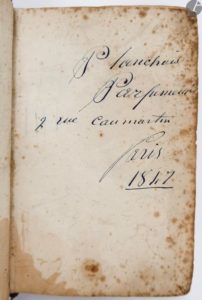 Planchais
Parfumeur
7 rue caumartin
Paris
1847